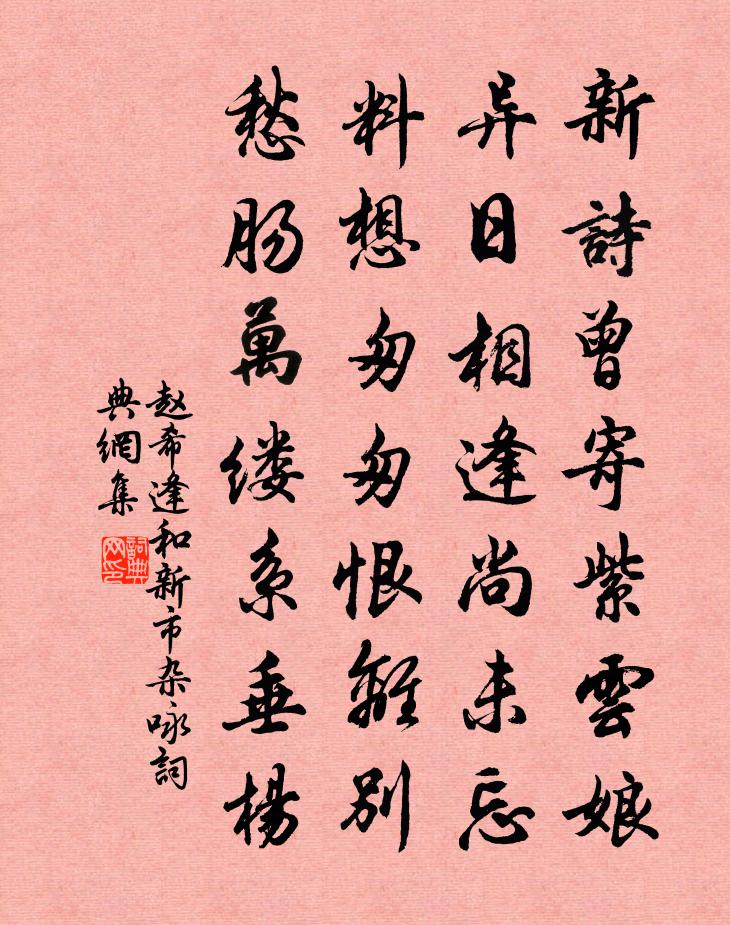 新詩曾寄紫雲娘
异日相逢尚未忘
料想匆匆恨離別
愁肠萬缕系垂楊
赵希逢和新市杂咏詞
典網集
詞典
网印